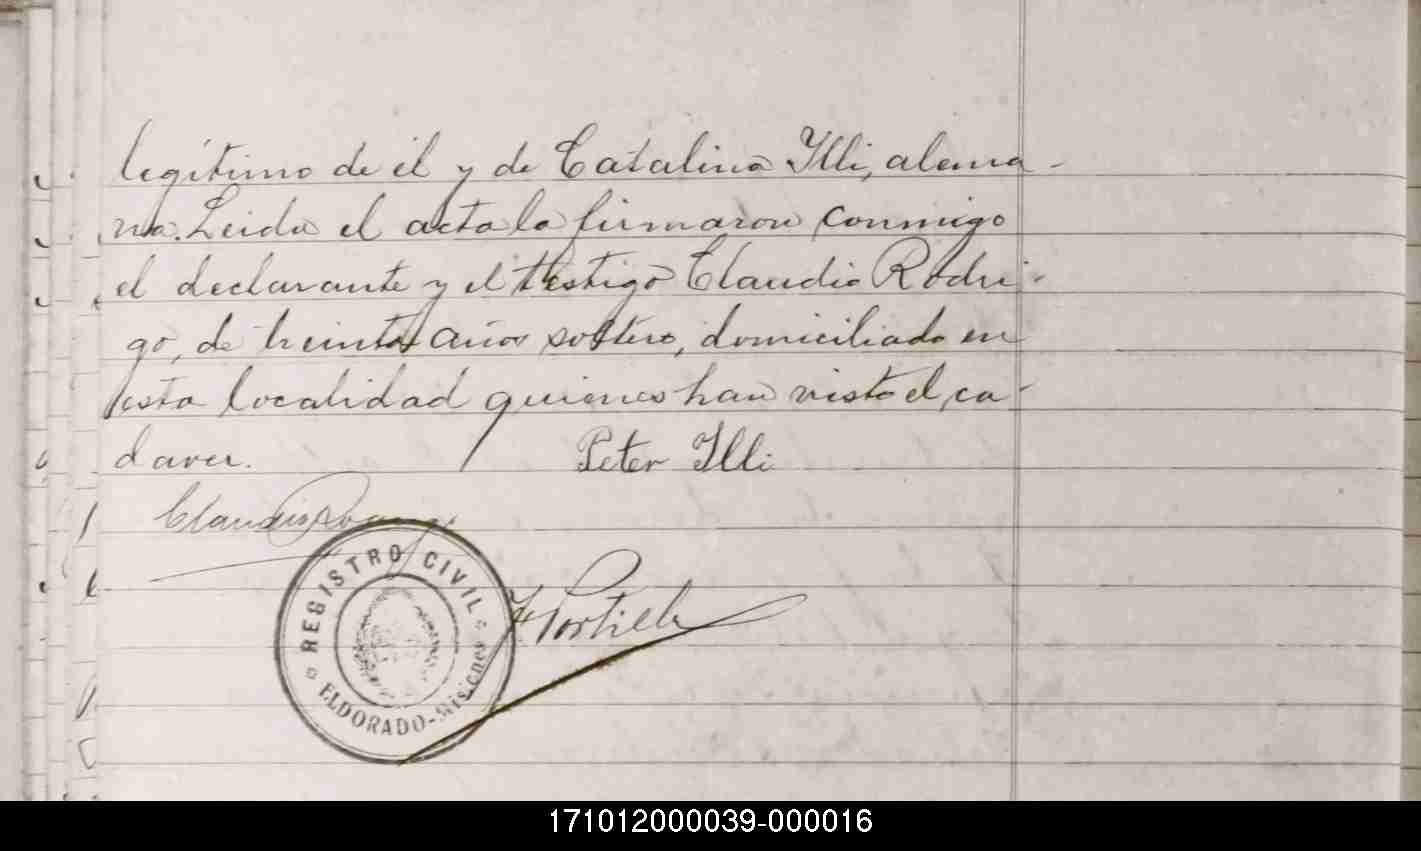 legítimo de él y de Catalina Illi, alema-
na. Leida el acta la firmaron conmigo
el declarante y el testigo Claudio Rodri-
go, de treinta años soltero, domiciliado en
esta localidad quienes han visto el ca-
daver.
Peter Illi
Claudio
REGISTRO CIVIL
ELDORADO-Misiones
Portillo
171012000039-000016